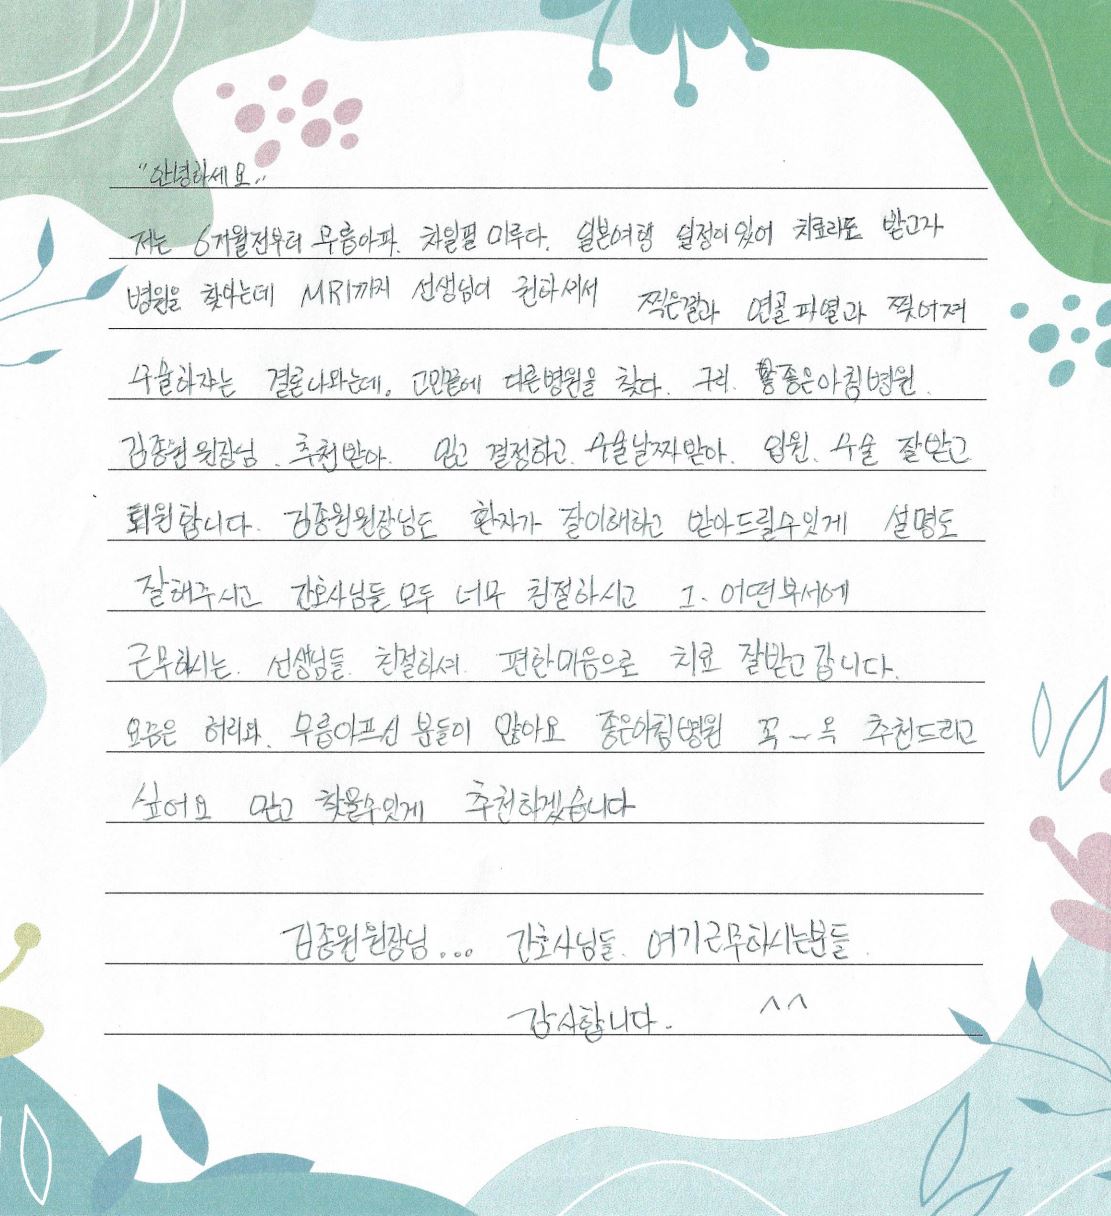 "안녕하세요"
저는 6개월전부터 무릎아파. 차일필 미루다. 일본여행 일정이 있어 치료라도 받고자
병원을 찾아는데 MRI까지 선생님이 권하셔서 찍은결과 연골파열과 찢어져
수술하자는 결론나와는데. 고민끝에 다른병원을 찾다. 구리. 좋은아침병원.
김종원 원장님. 추천받아. 믿고 결정하고. 수술날짜받아. 입원. 수술 잘받고
퇴원합니다. 김종원원장님도 환자가 잘이해하고 받아드릴수있게 설명도
잘해주시고 간호사님들 모두 너무 친절하시고 그. 어떤부서에
근무하시는. 선생님들. 친절하셔. 편한마음으로 치료 잘받고갑니다.
요즘은 허리와. 무릎아프신 분들이 많아요 좋은아침병원 꼭~옥 추천드리고
싶어요 믿고 찾을수있게 추천하겠습니다
김종원원장님... 간호사님들. 여기근무하시는분들.
감사합니다. ^^